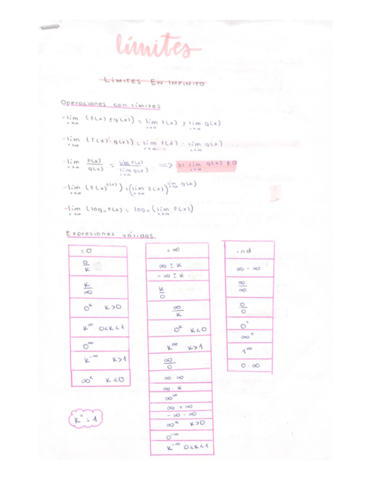 límites
LÍMITES EN INFINITO
Operaciones con límites
- lim (f(x) ± g(x)) = lim f(x) ± lim g(x)
- lim (f(x) · g(x)) = lim f(x) · lim g(x)
- lim f(x)/g(x) = lim f(x)/lim g(x) => si lim g(x) ≠ 0
- lim (f(x)^g(x)) = (lim f(x))^lim g(x)
- lim (log f(x)) = log (lim f(x))
Expresiones
= 0
0/k
k/∞
0^k k>0
k^∞ 0<k<1
0^∞
k^-∞ k>1
∞^k k<0
k⁰ = 1
= ∞
∞ ± k
-∞ ± k
k/0
∞/k
0^k k<0
k^∞ k>1
∞/0
∞ · ∞
∞ · k
∞^∞
∞ + ∞
-∞ - ∞
∞^k k>0
0^-∞
k^-∞ 0<k<1
ind
∞ - ∞
∞/∞
0/0
0⁰
∞⁰
1^∞
0 · ∞